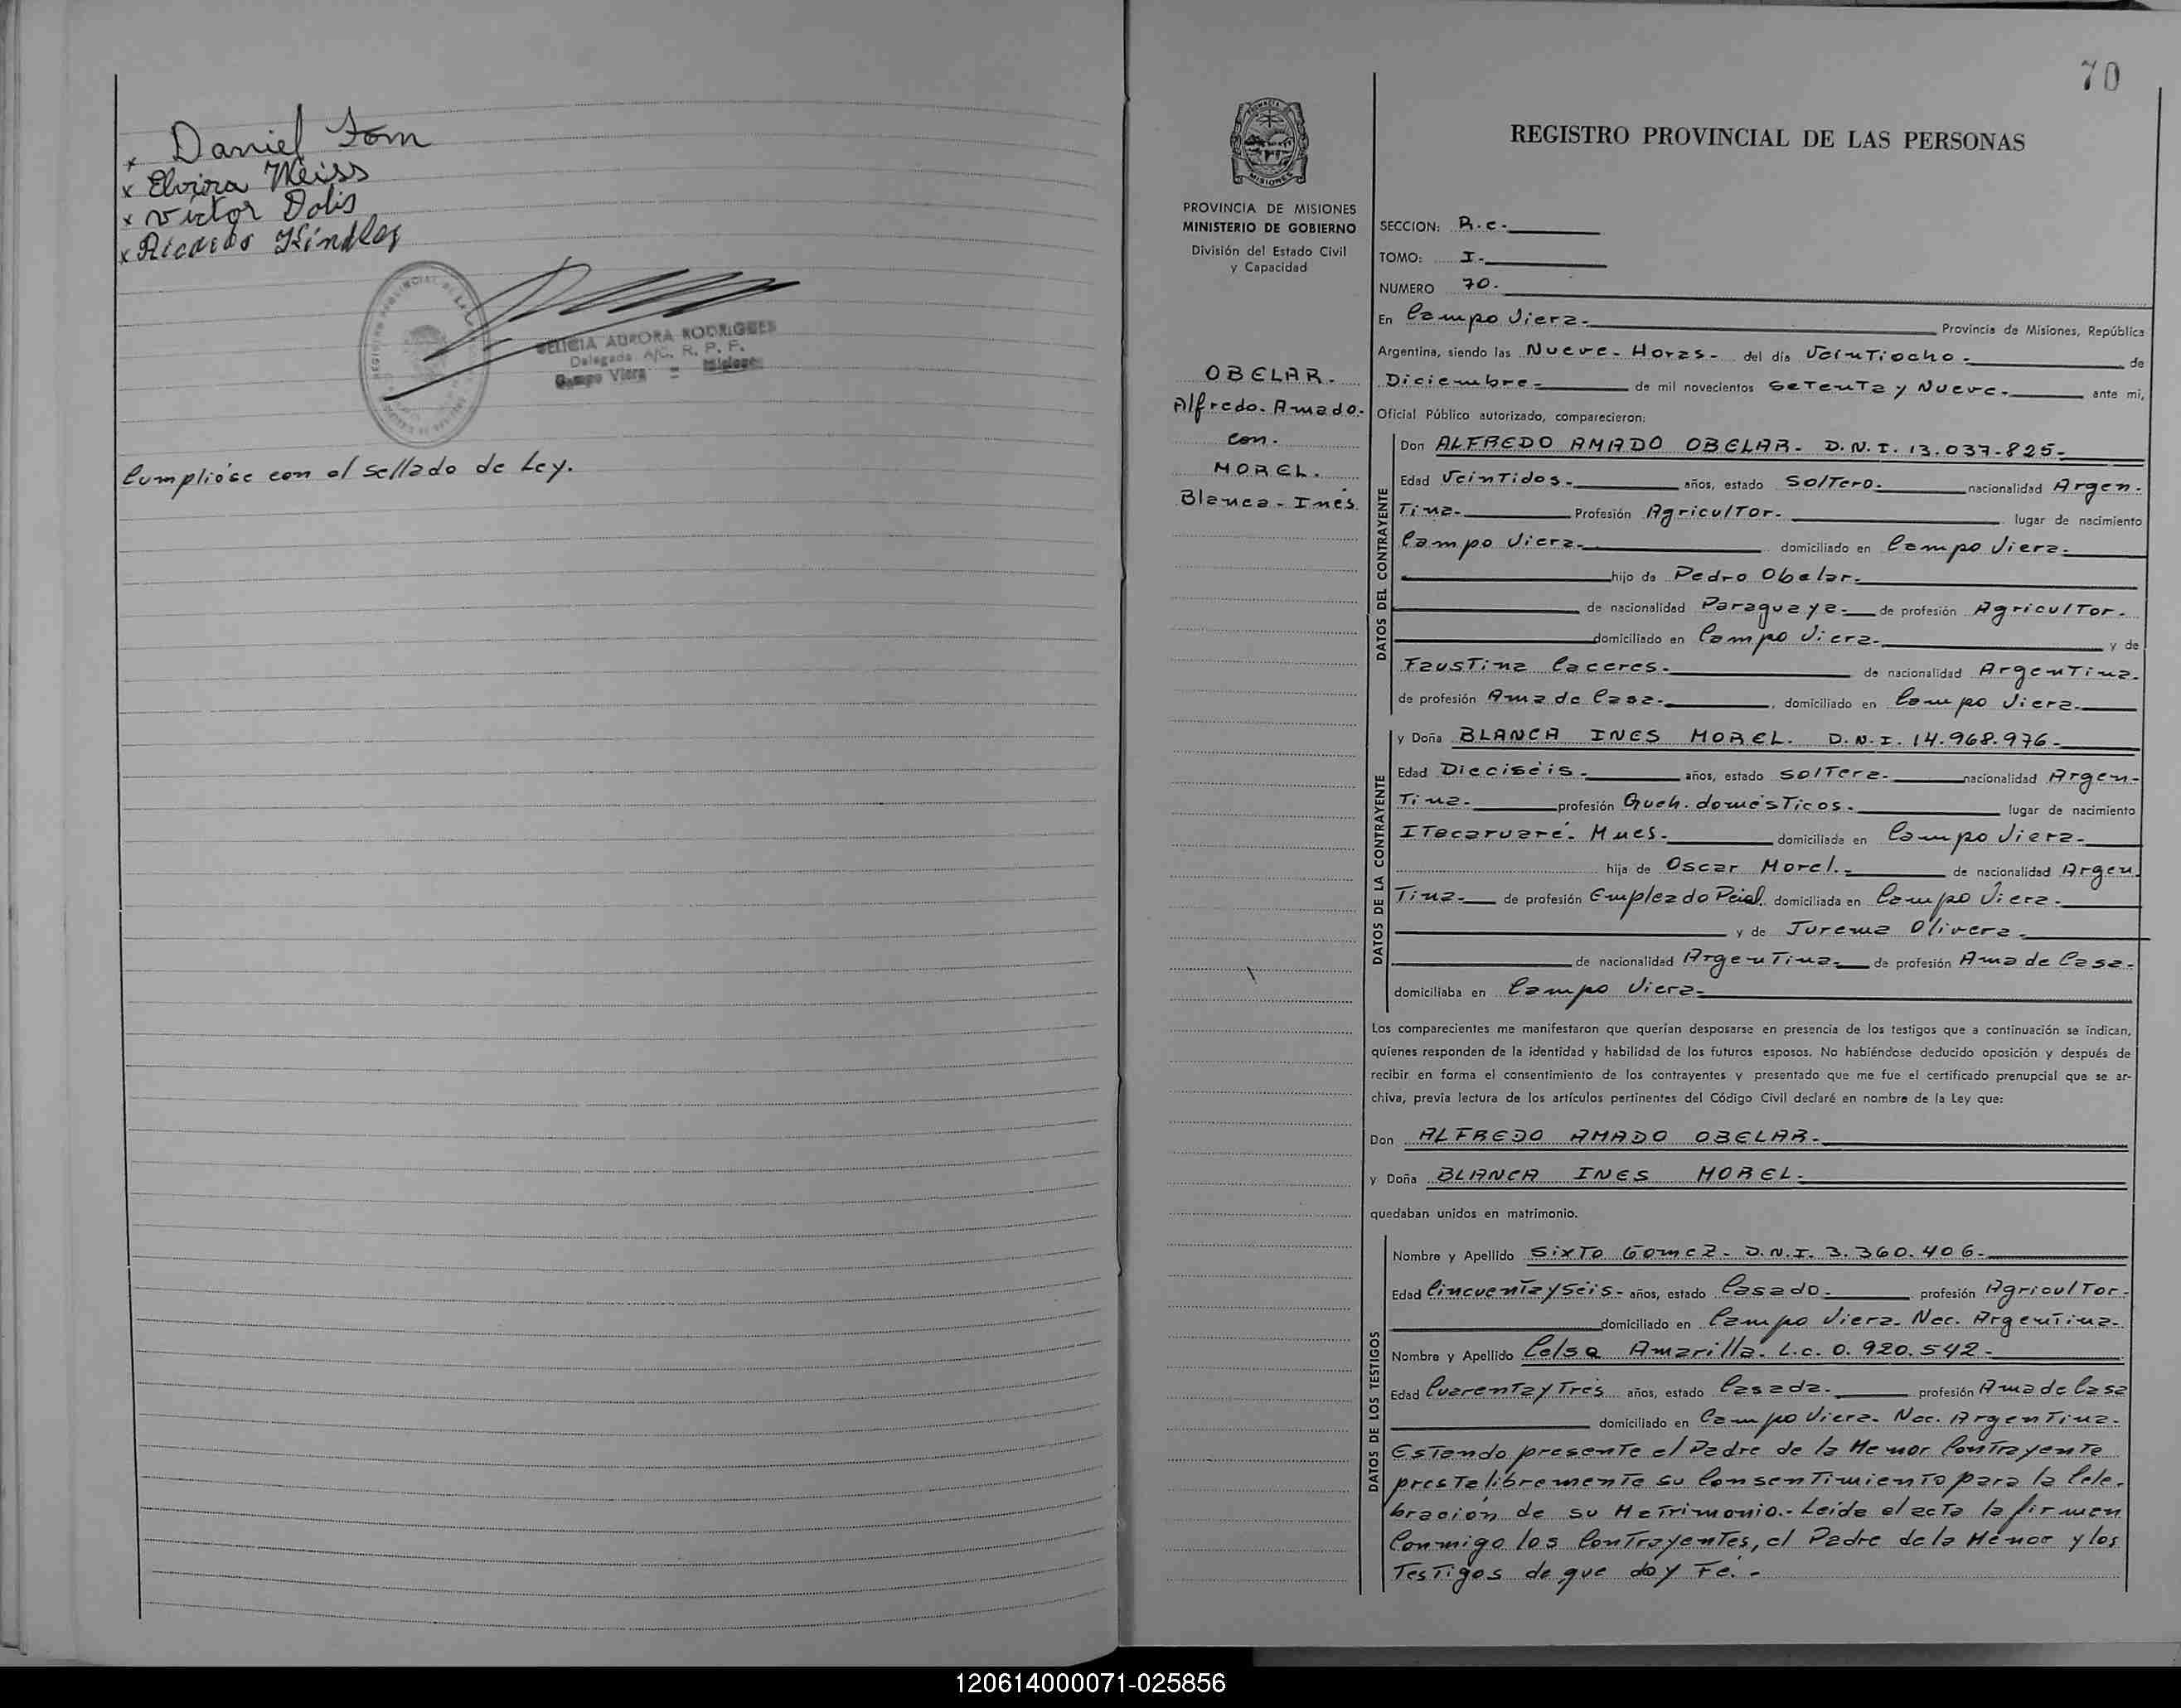 Daniel
x Elvira Weiss
x Victor Dolis
x Ricardo Kindler
FELICIA AURORA RODRIGUES
Delegada A/C. R. P. P.
Campo Viera = Misiones
Cumplióse con el sellado de Ley.
70
REGISTRO PROVINCIAL DE LAS PERSONAS
MISIONES
PROVINCIA DE MISIONES
MINISTERIO DE GOBIERNO
División del Estado Civil
y Capacidad
OBELAR.
Alfredo. Amado.
con.
MOREL.
Blanca - Inés
SECCION: R.c.
TOMO: I.-
NUMERO 70.
En Campo Viera.- Provincia de Misiones, República
Argentina, siendo las Nueve - Horas - del día Veintiocho.- de
Diciembre.- de mil novecientos Setenta y Nueve.- ante mi,
Oficial Público autorizado, comparecieron:
DATOS DEL CONTRAYENTE
Don ALFREDO AMADO OBELAR.- D.N.I. 13.037.825.-
Edad Veintidos.- años, estado Soltero.- nacionalidad Argen-
tina.- Profesión Agricultor.- lugar de nacimiento
Campo Viera.- domiciliado en Campo Viera.-
hijo de Pedro Obelar.-
de nacionalidad Paraguaya.- de profesión Agricultor.-
domiciliado en Campo Viera.- y de
Faustina Caceres.- de nacionalidad Argentina.-
de profesión Ama de Casa.- , domiciliado en Campo Viera.-
DATOS DE LA CONTRAYENTE
y Doña BLANCA INES MOREL. D.N.I. 14.968.976.-
Edad Dieciséis.- años, estado Soltera.- nacionalidad Argen-
tina.- profesión Queh. domésticos.- lugar de nacimiento
Itacaruaré.- Mnes.- domiciliada en Campo Viera.-
hija de Oscar Morel.- de nacionalidad Argen
tina.- de profesión Empleado Pcial. domiciliada en Campo Viera.-
y de Jurema Olivera.-
de nacionalidad Argentina.- de profesión Ama de Casa.-
domiciliaba en Campo Viera.-
Los comparecientes me manifestaron que querían desposarse en presencia de los testigos que a continuación se indican,
quienes responden de la identidad y habilidad de los futuros esposos. No habiéndose deducido oposición y después de
recibir en forma el consentimiento de los contrayentes y presentado que me fue el certificado prenupcial que se ar-
chiva, previa lectura de los artículos pertinentes del Código Civil declaré en nombre de la Ley que:
Don ALFREDO AMADO OBELAR.-
y Doña BLANCA INES MOREL.-
quedaban unidos en matrimonio.
DATOS DE LOS TESTIGOS
Nombre y Apellido Sixto Gomez.- D.N.I. 3.360.406.-
Edad Cincuenta y Séis.- años, estado Casado.- profesión Agricultor.-
domiciliado en Campo Viera. Nac. Argentina.-
Nombre y Apellido Celsa Amarilla. L.c. 0.920.542.-
Edad Cuarenta y Tres años, estado Casada.- profesión Ama de Casa
domiciliado en Campo Viera. Nac. Argentina.-
Estando presente el Padre de la Menor Contrayente
presta libremente su Consentimiento para la Cele-
bración de su Matrimonio.- Leída el acta la firman
Conmigo los Contrayentes, el Padre de la Menor y los
Testigos de que doy Fé.-
120614000071-025856